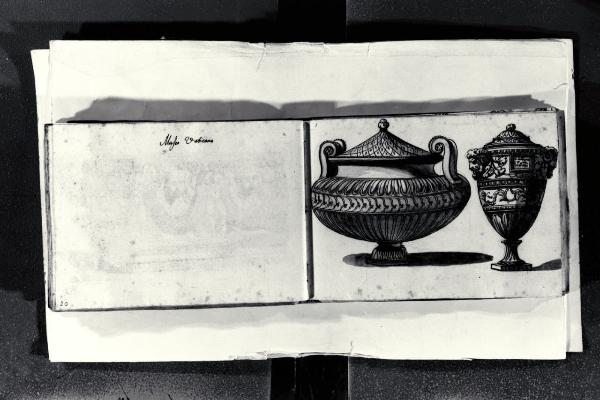 Museo Vaticano
20